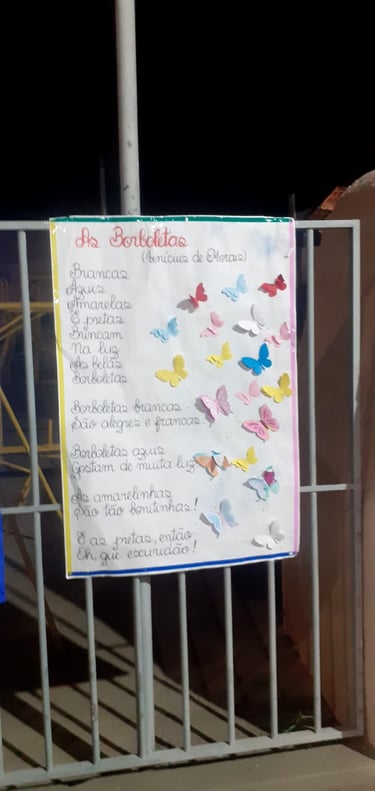 As Borboletas
(Vinícius de Morais)
Brancas
Azuis
Amarelas
E pretas
Brincam
Na luz
As belas
Borboletas
Borboletas brancas
São alegres e francas.
Borboletas azuis
Gostam de muita luz
As amarelinhas
São tão bonitinhas!
E as pretas, então
Oh, que escuridão!